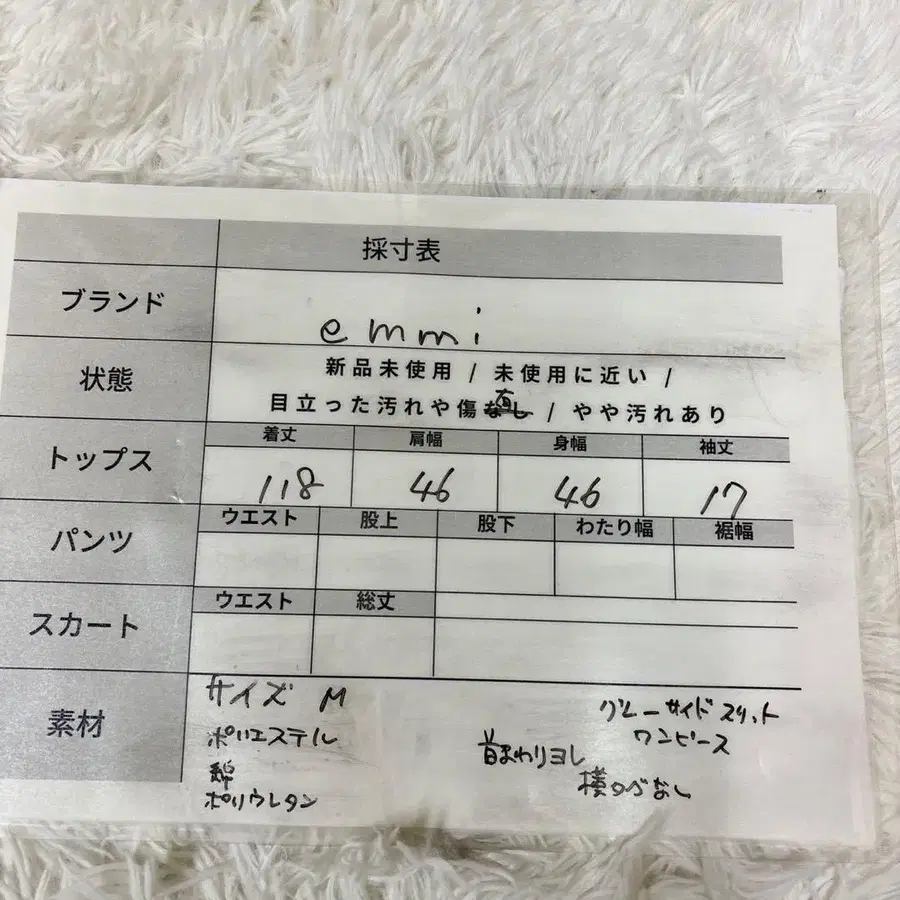 採寸表
ブランド
emmi
状態
新品未使用 / 未使用に近い /
目立った汚れや傷 / やや汚れあり
トップス
着丈 肩幅 身幅 袖丈
118 46 46 17
パンツ
ウエスト 股上 股下 わたり幅 裾幅
スカート
ウエスト 総丈
素材
サイズ M
ポリエステル
綿
ポリウレタン
グレーサイドスリット
ワンピース
首まわりヨレ
横タグなし